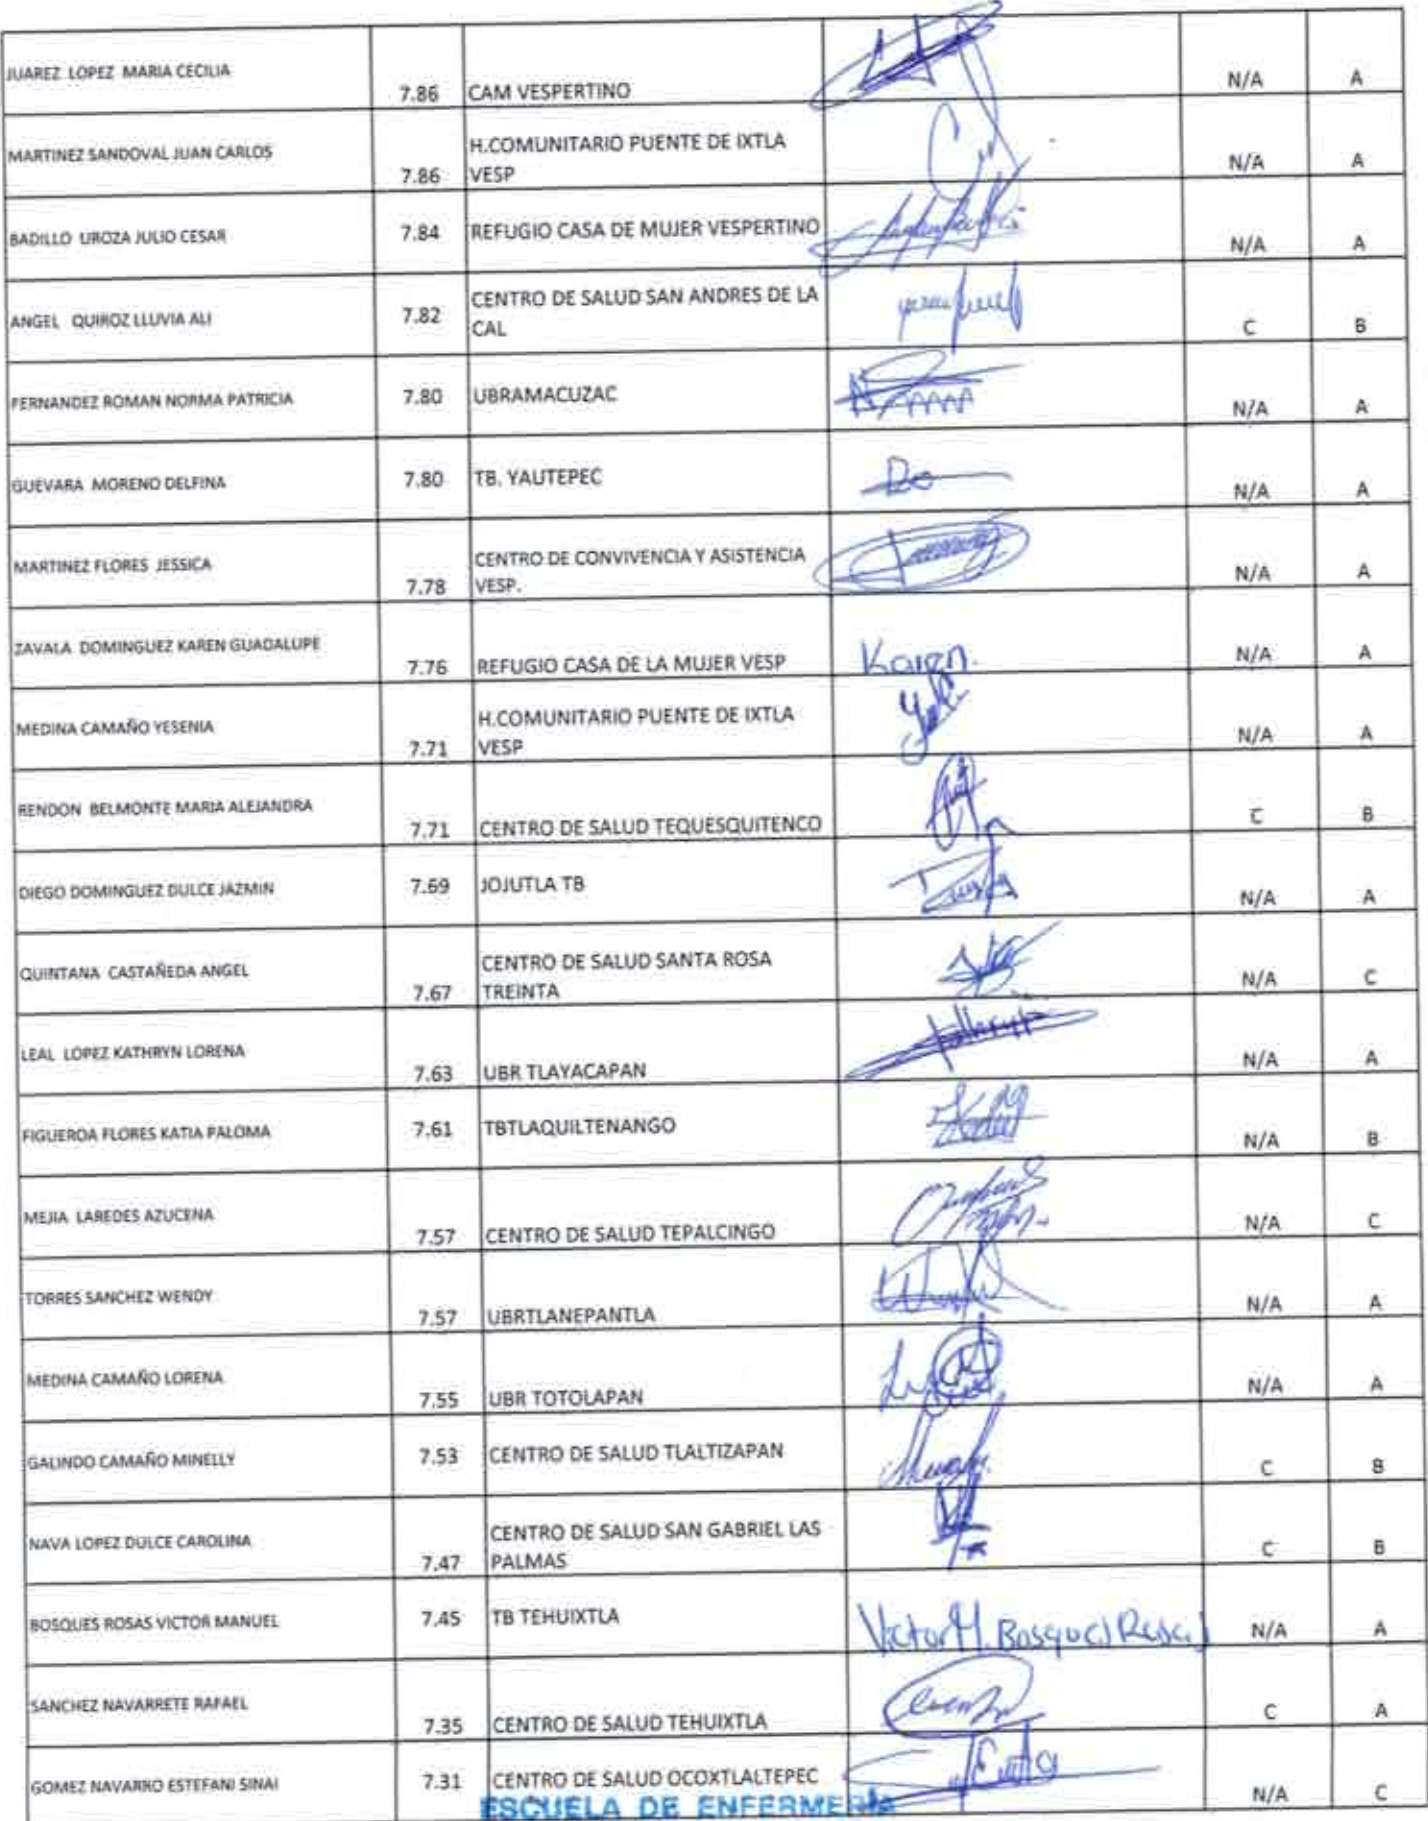 JUAREZ LOPEZ MARIA CECILIA 7.86 CAM VESPERTINO N/A A
MARTINEZ SANDOVAL JUAN CARLOS 7.86 H.COMUNITARIO PUENTE DE IXTLA
VESP N/A A
BADILLO UROZA JULIO CESAR 7.84 REFUGIO CASA DE MUJER VESPERTINO N/A A
ANGEL QUIROZ LLUVIA ALI 7.82 CENTRO DE SALUD SAN ANDRES DE LA
CAL C B
FERNANDEZ ROMAN NORMA PATRICIA 7.80 UBRAMACUZAC N/A A
GUEVARA MORENO DELFINA 7.80 TB. YAUTEPEC N/A A
MARTINEZ FLORES JESSICA 7.78 CENTRO DE CONVIVENCIA Y ASISTENCIA
VESP. N/A A
ZAVALA DOMINGUEZ KAREN GUADALUPE 7.76 REFUGIO CASA DE LA MUJER VESP Karen. N/A A
MEDINA CAMAÑO YESENIA 7.71 H.COMUNITARIO PUENTE DE IXTLA
VESP N/A A
RENDON BELMONTE MARIA ALEJANDRA 7.71 CENTRO DE SALUD TEQUESQUITENCO C B
DIEGO DOMINGUEZ DULCE JAZMIN 7.69 JOJUTLA TB N/A A
QUINTANA CASTAÑEDA ANGEL 7.67 CENTRO DE SALUD SANTA ROSA
TREINTA N/A C
LEAL LOPEZ KATHRYN LORENA 7.63 UBR TLAYACAPAN N/A A
FIGUEROA FLORES KATIA PALOMA 7.61 TBTLAQUILTENANGO N/A B
MEJIA LAREDES AZUCENA 7.57 CENTRO DE SALUD TEPALCINGO N/A C
TORRES SANCHEZ WENDY 7.57 UBRTLANEPANTLA N/A A
MEDINA CAMAÑO LORENA 7.55 UBR TOTOLAPAN N/A A
GALINDO CAMAÑO MINELLY 7.53 CENTRO DE SALUD TLALTIZAPAN C B
NAVA LOPEZ DULCE CAROLINA 7.47 CENTRO DE SALUD SAN GABRIEL LAS
PALMAS C B
BOSQUES ROSAS VICTOR MANUEL 7.45 TB TEHUIXTLA Victor M. Bosques Rosas N/A A
SANCHEZ NAVARRETE RAFAEL 7.35 CENTRO DE SALUD TEHUIXTLA C A
GOMEZ NAVARRO ESTEFANI SINAI 7.31 CENTRO DE SALUD OCOXTLALTEPEC N/A C
ESCUELA DE ENFERMERIA